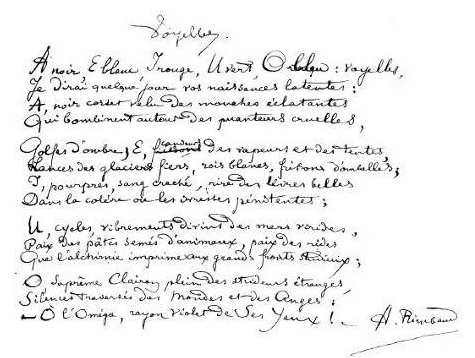 Voyelles.
A noir, E blanc, I rouge, U vert, O bleu : voyelles,
Je dirai quelque jour vos naissances latentes :
A, noir corset velu des mouches éclatantes
Qui bombinent autour des puanteurs cruelles,
Golfes d'ombre; E, candeurs des vapeurs et des tentes,
Lances des glaciers fiers, rois blancs, frissons d'ombelles;
I, pourpres, sang craché, rire des lèvres belles
Dans la colère ou les ivresses pénitentes ;
U, cycles, vibrements divins des mers virides,
Paix des pâtis semés d'animaux, paix des rides
Que l'alchimie imprime aux grands fronts studieux ;
O, Suprême Clairon plein des strideurs étranges,
Silences traversés des Mondes et des Anges :
— O l'Oméga, rayon violet de Ses Yeux ! —
A. Rimbaud